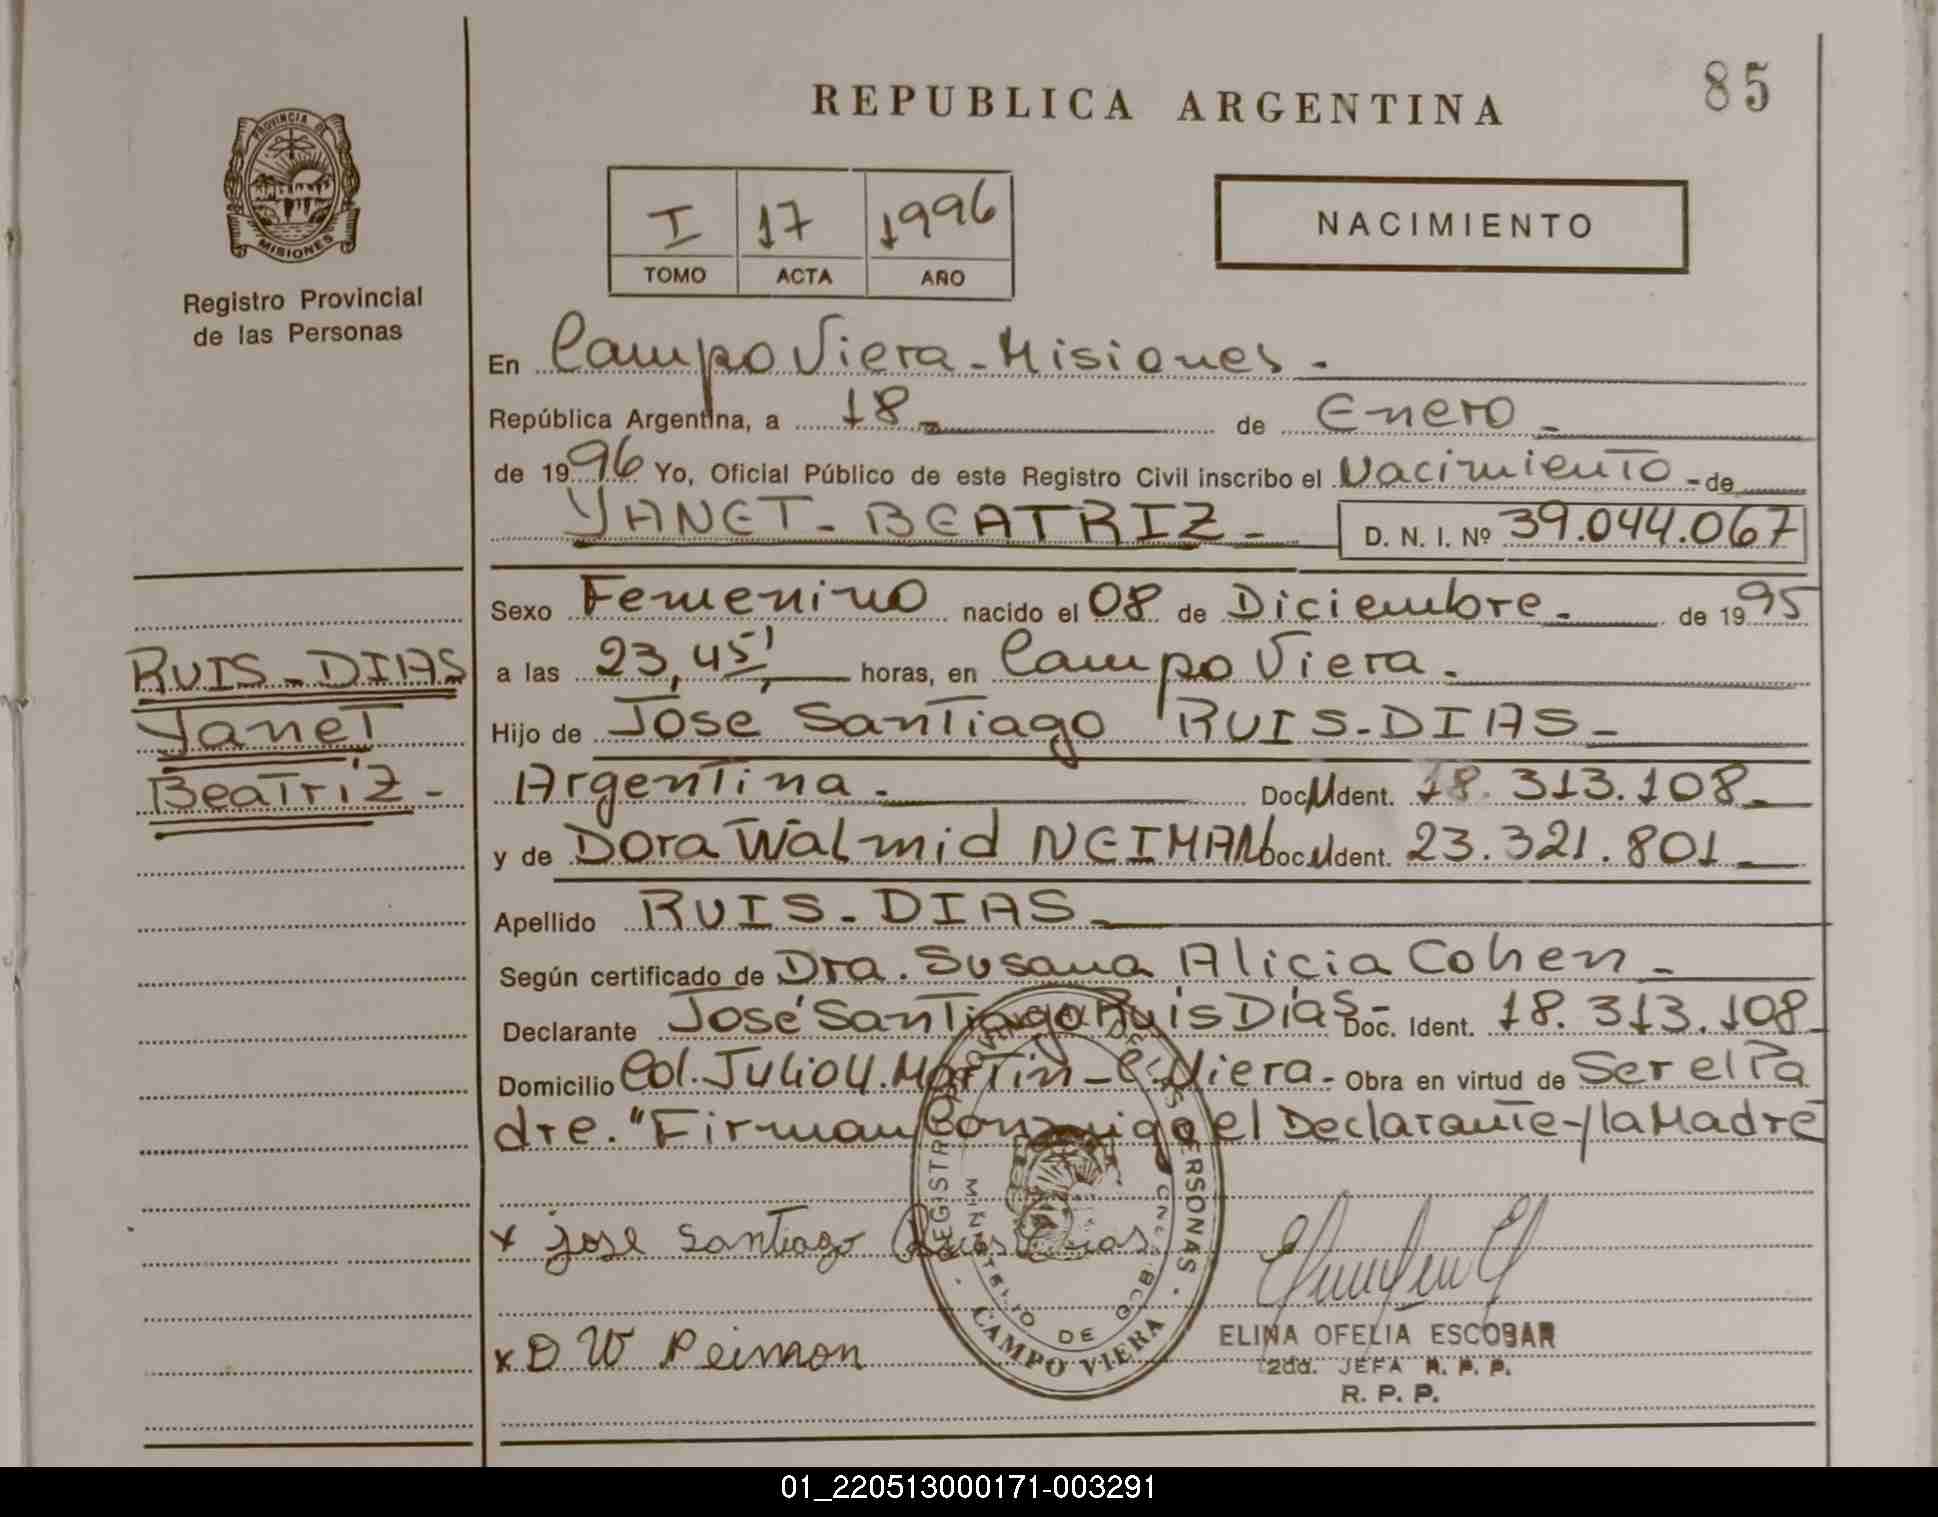 REPUBLICA ARGENTINA
85
PROVINCIA DE
MISIONES
Registro Provincial
de las Personas
I 17 1996
TOMO ACTA AÑO
NACIMIENTO
En Campo Viera - Misiones -
República Argentina, a 18 - de Enero -
de 1996 Yo, Oficial Público de este Registro Civil inscribo el Nacimiento - de
YANET - BEATRIZ - D. N. I. Nº 39.044.067
Sexo Femenino nacido el 08 de Diciembre - de 1995
a las 23,45' horas, en Campo Viera -
Hijo de José Santiago RUIS - DIAS -
Argentina - Doc. Ident. 18.313.108 -
y de Dora Walmid NEIMAN Doc. Ident. 23.321.801 -
Apellido RUIS - DIAS -
Según certificado de Dra. Susana Alicia Cohen -
Declarante José Santiago Ruis Dias - Doc. Ident. 18.313.108
Domicilio Col. Julio U. Martin - C. Viera - Obra en virtud de Ser el Pa
dre. "Firman Conmigo el Declarante y la Madre
RUIS - DIAS
Yanet
Beatriz -
x jose Santiago Ruis Dias
x D W Neimon
CAMPO VIERA
ELINA OFELIA ESCOBAR
2da. JEFA R. P. P.
R. P. P.
01_220513000171-003291